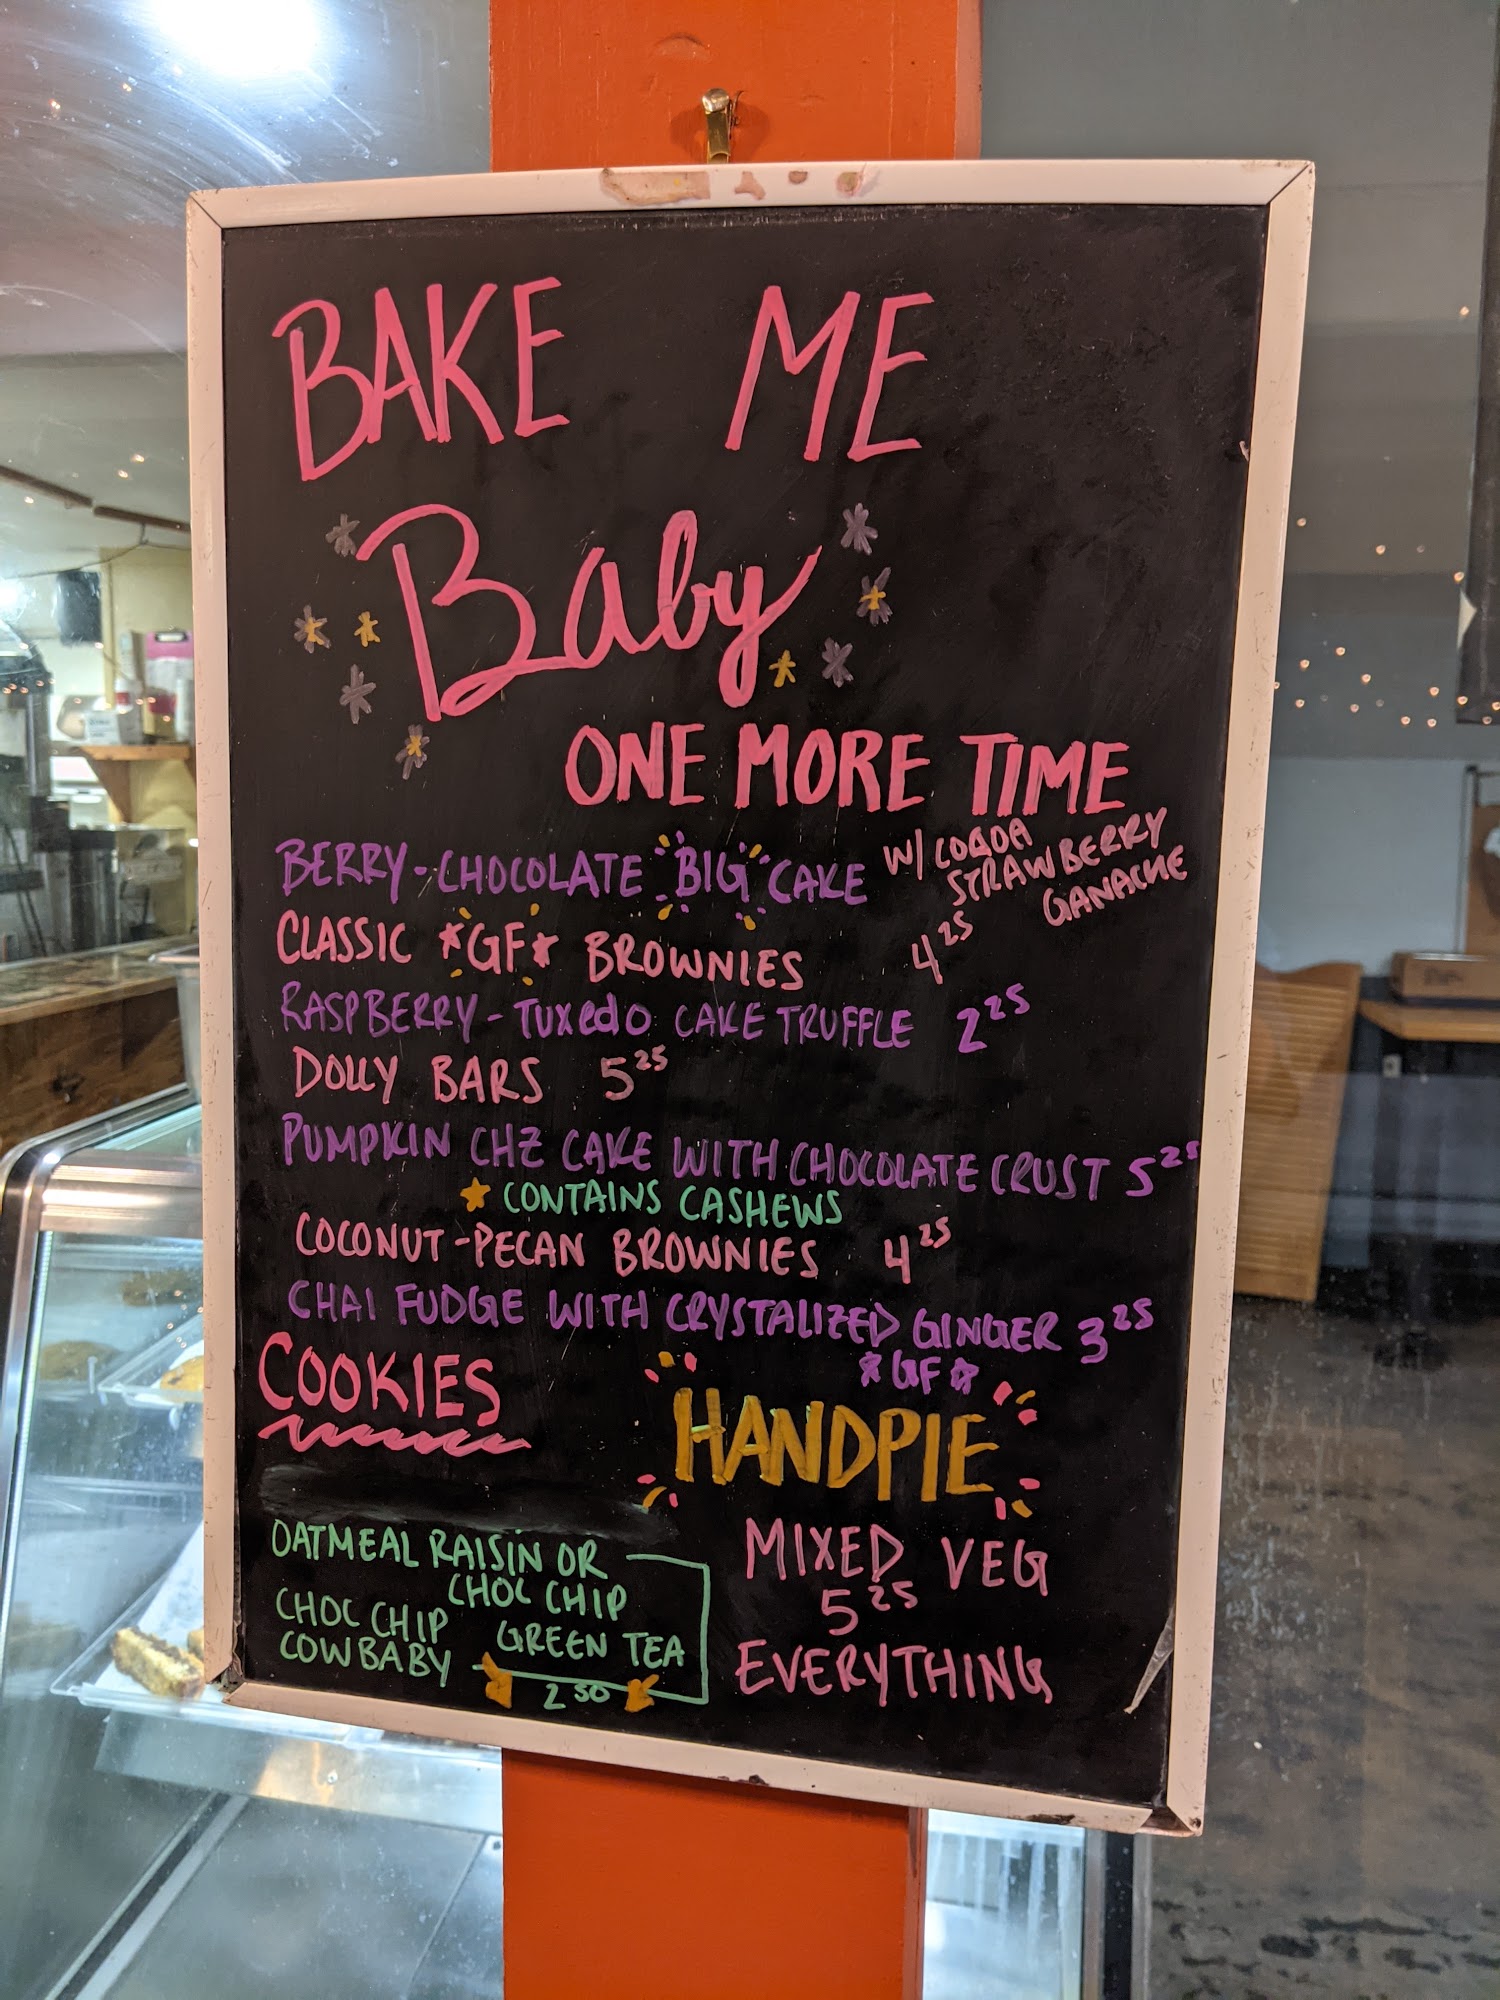 BAKE ME
Baby
ONE MORE TIME
BERRY-CHOCOLATE "BIG" CAKE W/ COCOA
STRAWBERRY
GANACHE
CLASSIC *GF* BROWNIES 4 25
RASPBERRY-TUXEDO CAKE TRUFFLE 2 25
DOLLY BARS 5 25
PUMPKIN CHZ CAKE WITH CHOCOLATE CRUST 5 25
★ CONTAINS CASHEWS
COCONUT-PECAN BROWNIES 4 25
CHAI FUDGE WITH CRYSTALIZED GINGER 3 25
*GF*
COOKIES
OATMEAL RAISIN OR
CHOC CHIP
CHOC CHIP
COWBABY
GREEN TEA
2 50
HANDPIE
MIXED VEG
5 25
EVERYTHING